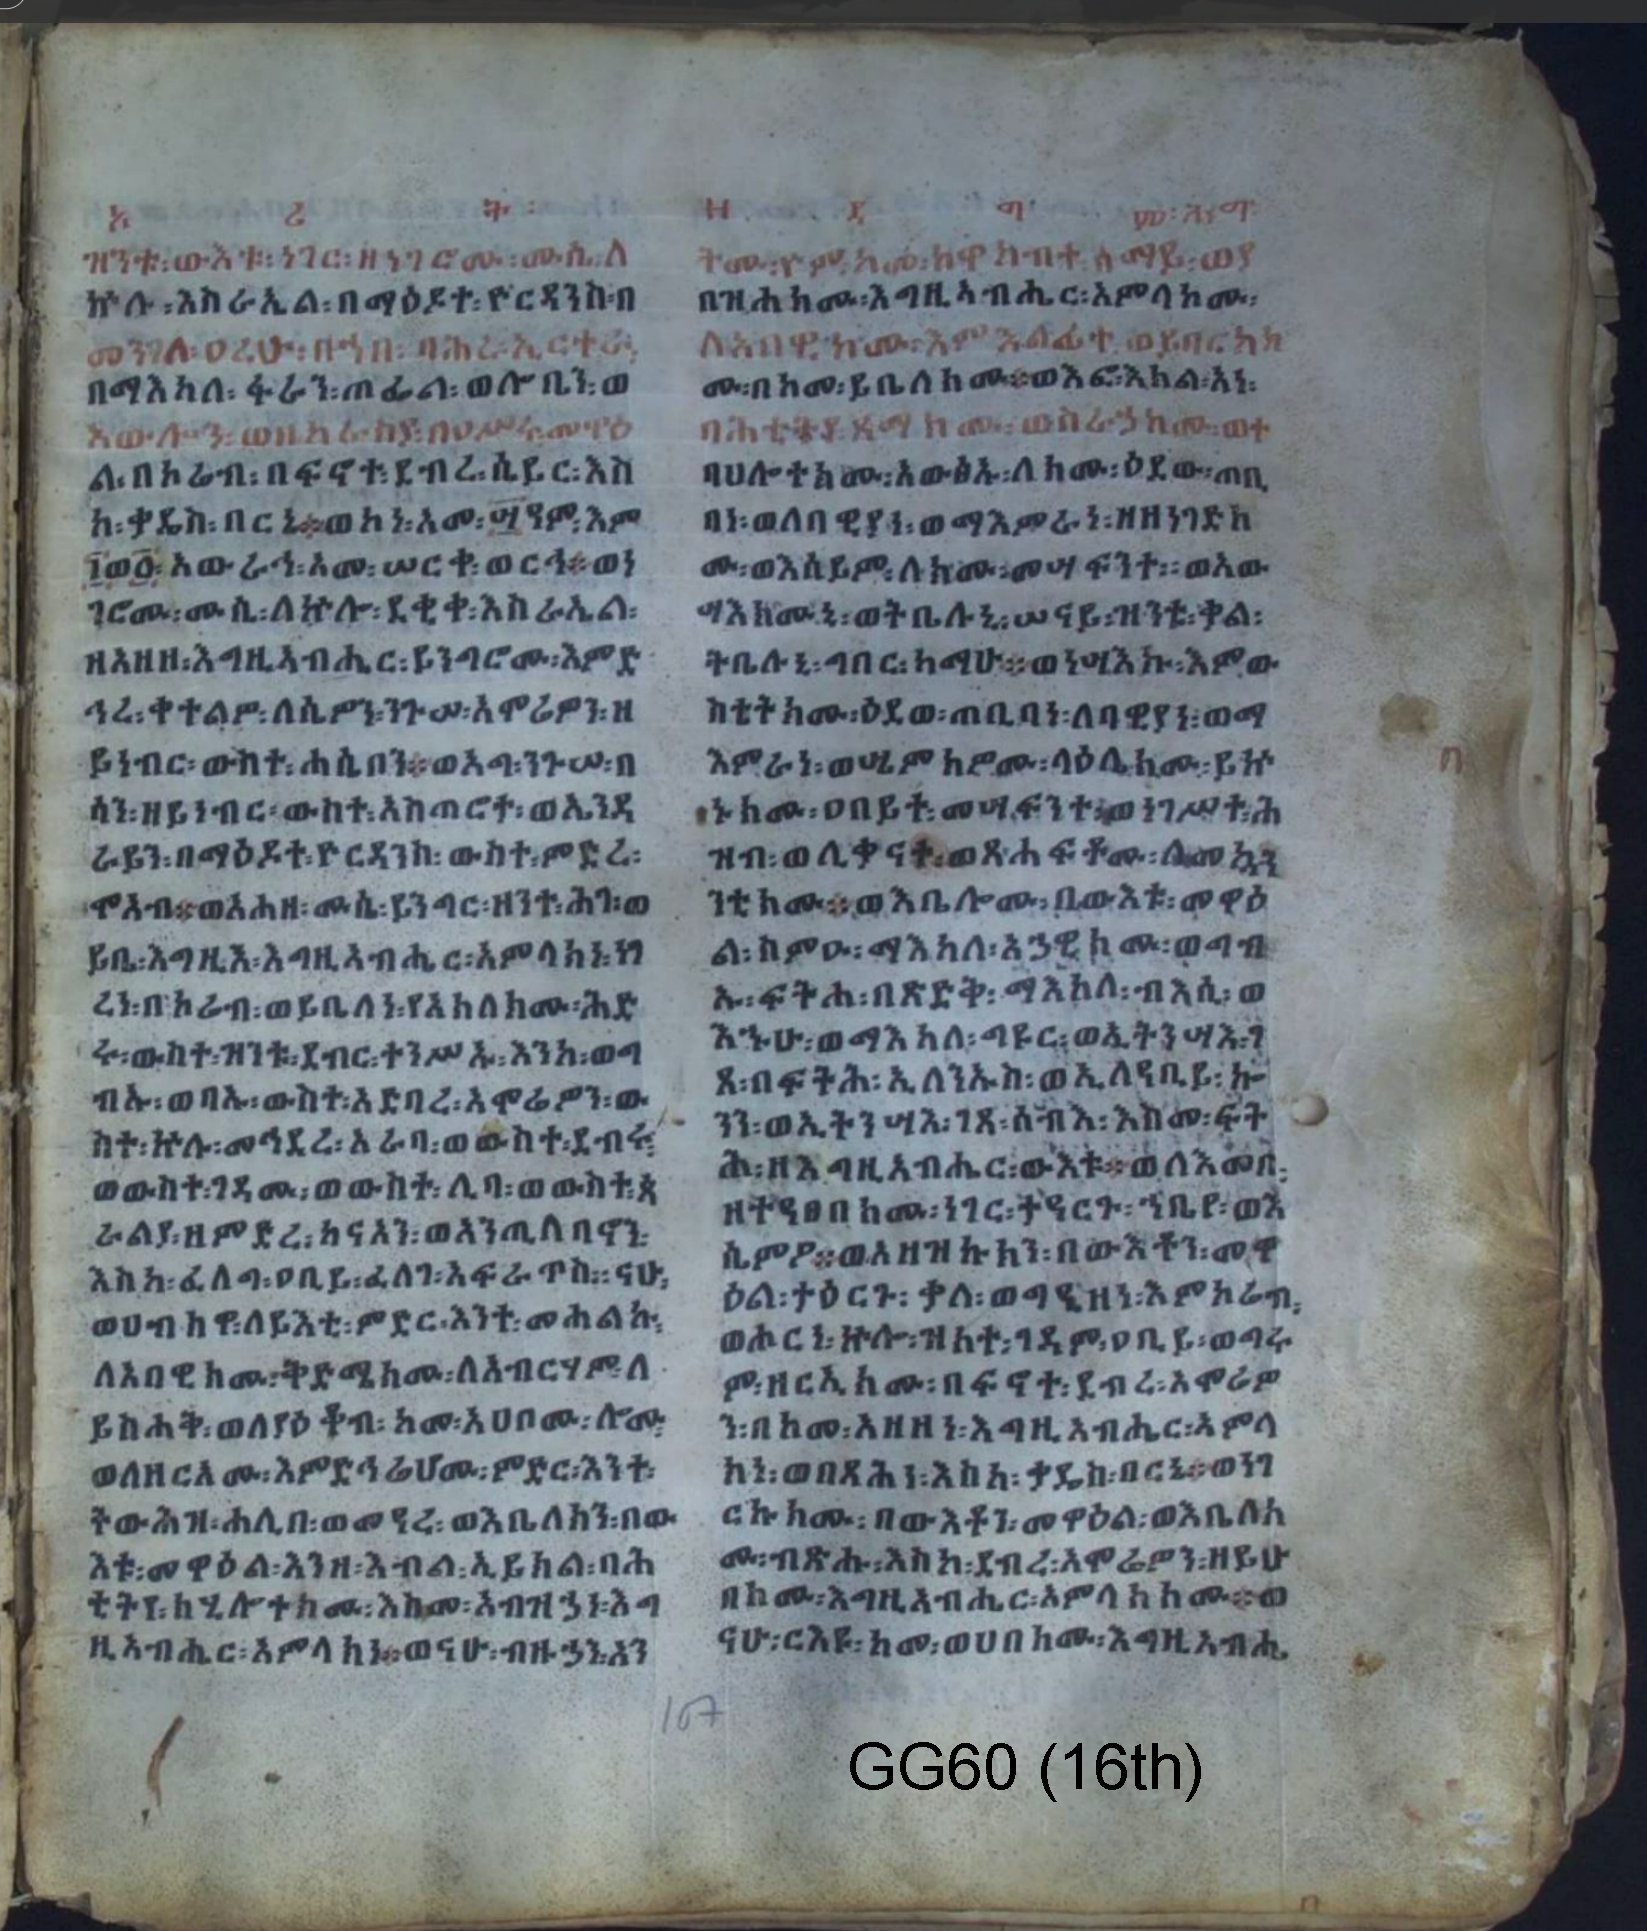 ኦ ሪ ት ።
ዝንቱ፡ውእቱ፡ነገር፡ዘነገሮሙ፡ሙሴ፡ለ
ኵሉ፡እስራኤል፡በማዕዶተ፡ዮርዳንስ፡በ
መንገለ፡ዐረቢሁ፡በኀበ፡ባሕረ፡ኤርትራ፡
በማእከለ፡ፋራን፡ጦፌል፡ወሎቤን፡ወ
ል፡በኮሬብ፡በፍኖተ፡ደብረ፡ሴይር፡እስ
ከ፡ቃዴስ፡በርኔ፡፡ወኮነ፡አመ፡፵ዓም፡እም
፲ወ፩፡አውራኅ፡አመ፡ሠርቀ፡ወርኅ፡፡ወነ
ገሮሙ፡ሙሴ፡ለኵሎ፡ደቂቀ፡እስራኤል፡
ዘአዘዘ፡እግዚአብሔር፡ይንግሮሙ፡እምድ
ኅረ፡ቀተልዎ፡ለሴዎን፡ንጉሠ፡አሞሬዎን፡ዘ
ይነብር፡ውስተ፡ሐሴቦን፡፡ወአግ፡ንጉሠ፡በ
ሳን፡ዘይነብር፡ውስተ፡አስጠሮት፡ወኤንዳ
ራይን፡በማዕዶተ፡ዮርዳንስ፡ውስተ፡ምድረ፡
ሞአብ፡፡ወአሐዘ፡ሙሴ፡ይንግር፡ዘንተ፡ሕገ፡ወ
ይቤ፡እግዚእ፡እግዚአብሔር፡አምላክነ፡ነገ
ረነ፡በኮሬብ፡ወይቤለነ፡የአክለክሙ፡ሕድ
ሩ፡ውስተ፡ዝንቱ፡ደብር፡ተንሥኡ፡እንከ፡ወግ
ብኡ፡ወባኡ፡ውስተ፡አድባረ፡አሞሬዎን፡ው
ስተ፡ኵሉ፡መኅደረ፡አራባ፡ወውስተ፡ደብሩ፡
ወውስተ፡ገዳሙ፡ወውስተ፡ሊባ፡ወውስተ፡ጳ
ራልያ፡ዘምድረ፡ከናአን፡ወአንጢሊባኖን፡
እስከ፡ፈለግ፡ዐቢይ፡ፈለገ፡አፍራጥስ፡፡ናሁ፡
ወሀብክዋ፡ለይእቲ፡ምድር፡እንተ፡መሐልኩ፡
ለአበዊክሙ፡ቅድሜክሙ፡ለአብርሃም፡ለ
ይስሐቅ፡ወለያዕቆብ፡ከመ፡አሀቦሙ፡ሎሙ፡
ወለዘርአሙ፡እምድኅሬሆሙ፡ምድር፡እንተ፡
ትውሕዝ፡ሐሊበ፡ወመዓረ፡ወእቤለክን፡በው
እቱ፡መዋዕል፡እንዘ፡እብል፡ኢይክል፡ባሕ
ቲትየ፡ከሂሎተክሙ፡እስመ፡አብዝኃነ፡እግ
ዚአብሔር፡አምላክነ፡፡ወናሁ፡ብዙኃነ፡አን
ትሙ፡ዮም፡ከመ፡ከዋክብተ፡ሰማይ፡ወያ
በዝሕክሙ፡እግዚአብሔር፡አምላክሙ፡
ሙ፡በከመ፡ይቤለክሙ፡፡ወእፎ፡እክል፡አነ፡
ባሀሎተክሙ፡አውፅኡ፡ለክሙ፡ዕደው፡ጠቢ
ባነ፡ወለባዊያነ፡ወማእምራነ፡ዘዘነገድክ
ሙ፡ወእሰይም፡ለክሙ፡መሣፍንተ፡፡ወአው
ሣእክሙኒ፡ወትቤሉኒ፡ሠናይ፡ዝንቱ፡ቃል፡
ትቤሉኒ፡ግበር፡ከማሁ፡፡ወነሣእኩ፡እምው
ስቴትክሙ፡ዕደወ፡ጠቢባነ፡ለባዊያነ፡ወማ
እምራነ፡ወሤምክዎሙ፡ላዕሌክሙ፡ይኵ
ኑክሙ፡ዐበይተ፡መሣፍንተ፡ወነገሥተ፡ሕ
ዝብ፡ወሊቃናተ፡ወጸሐፍቶሙ፡ለመኳን
ንቲክሙ፡፡ወእቤሎሙ፡በውእቱ፡መዋዕ
ል፡ስምዑ፡ማእከለ፡አኃዊክሙ፡ወግብ
ኡ፡ፍትሐ፡በጽድቅ፡ማእከለ፡ብእሲ፡ወ
እኁሁ፡ወማእከለ፡ግዩር፡ወኢትንሣእ፡ገ
ጸ፡በፍትሕ፡ኢለንኡስ፡ወኢለዓቢይ፡ኰ
ንን፡ወኢትንሣእ፡ገጸ፡ሰብእ፡እስመ፡ፍት
ሕ፡ዘእግዚአብሔር፡ውእቱ፡፡ወለእመቦ፡
ዘተዓፀበክሙ፡ነገር፡ታዓርጉ፡ኀቤየ፡ወእ
ሴምዖ፡፡ወአዘዝኩክን፡በውእቶን፡መዋ
ዕል፡ታዕርጉ፡ቃለ፡ወግዒዘነ፡እምኮሬብ፡
ወሖርነ፡ኵሎ፡ዝክተ፡ገዳም፡ዐቢይ፡ወግሩ
ም፡ዘርኢክሙ፡በፍኖተ፡ደብረ፡አሞሬዎ
ን፡በከመ፡አዘዘነ፡እግዚአብሔር፡አምላ
ክነ፡ወበጻሕነ፡እስከ፡ቃዴስ፡በርኔ፡፡ወነገ
ርኩክሙ፡በውእቶን፡መዋዕል፡ወእቤለክ
ሙ፡ብጽሑ፡እስከ፡ደብረ፡አሞሬዎን፡ዘይሁ
በክሙ፡እግዚአብሔር፡አምላክክሙ፡፡ወ
ናሁ፡ርእዩ፡ከመ፡ወሀበክሙ፡እግዚአብሔ
107
GG60 (16th)